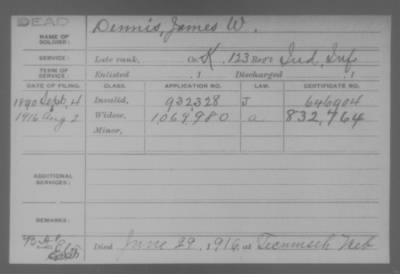 DEAD
NAME OF SOLDIER: Dennis, James W.
SERVICE: Late rank, Co. K, 123 Reg't Ind. Inf.
TERM OF SERVICE: Enlisted , 1 Discharged , 1
DATE OF FILING. CLASS. APPLICATION NO. LAW. CERTIFICATE NO.
1890 Sept. 4 Invalid, 932,328 J 646904
1916 Aug 2 Widow, 1,069,980 a. 832,764
Minor,
ADDITIONAL SERVICES:
REMARKS:
Died June 29, 1916, at Tecumseh Neb